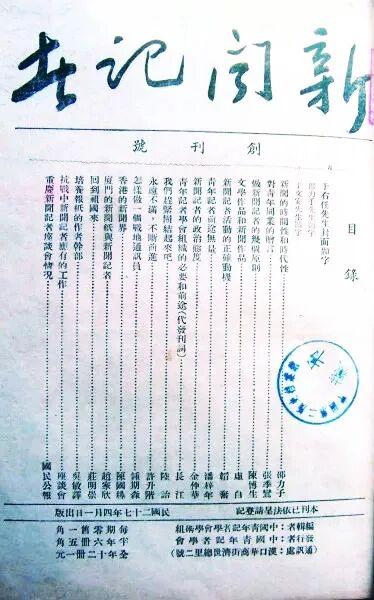 新聞記者
創刊號
目錄
于右任先生封面題字
邵力子先生題字
新聞的時間性和時代性…………邵力子
對青年同業的贈言…………張季鸞
做新聞記者的幾個原則…………陳博生
文學作品和新聞作品…………虛白
新聞記者活動的正確動機…………韜奮
青年記者前途無量…………潘梓年
新聞記者的政治態度…………金仲華
青年記者學會組織的必要和前途(代發刊詞)…………長江
我們趕緊團結起來吧…………陸詒
永遠不滿,不斷前進…………許升階
怎樣做一個戰地通訊員…………鍾期森
香港的新聞界…………陳國
廈門的新聞紙與新聞記者…………趙家欣
回到祖國來…………莊明崇
培養報紙的作者幹部…………吳敏譯
抗戰中新聞記者應有的工作…………座談會
重慶新聞記者座談會情況…………國民公報
本刊已依法呈請登記
民國二十七年四月一日出版
編輯者:中國青年記者學會學術組
發行者:中國青年記者學會
(通訊處:漢口華商街濟世總里二號)
每期零售一角
半年六冊五角
全年十二冊一元